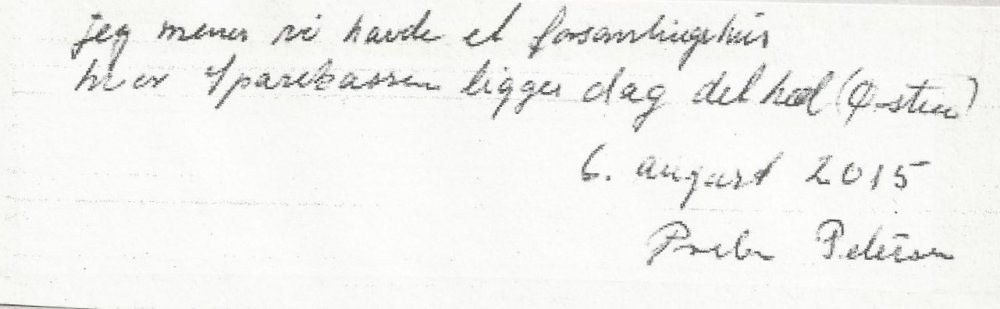 jeg mener vi havde et forsamlingshus
hvor Sparekassen ligger dag det hed (Østen)
6. august 2015
Preben Petersen